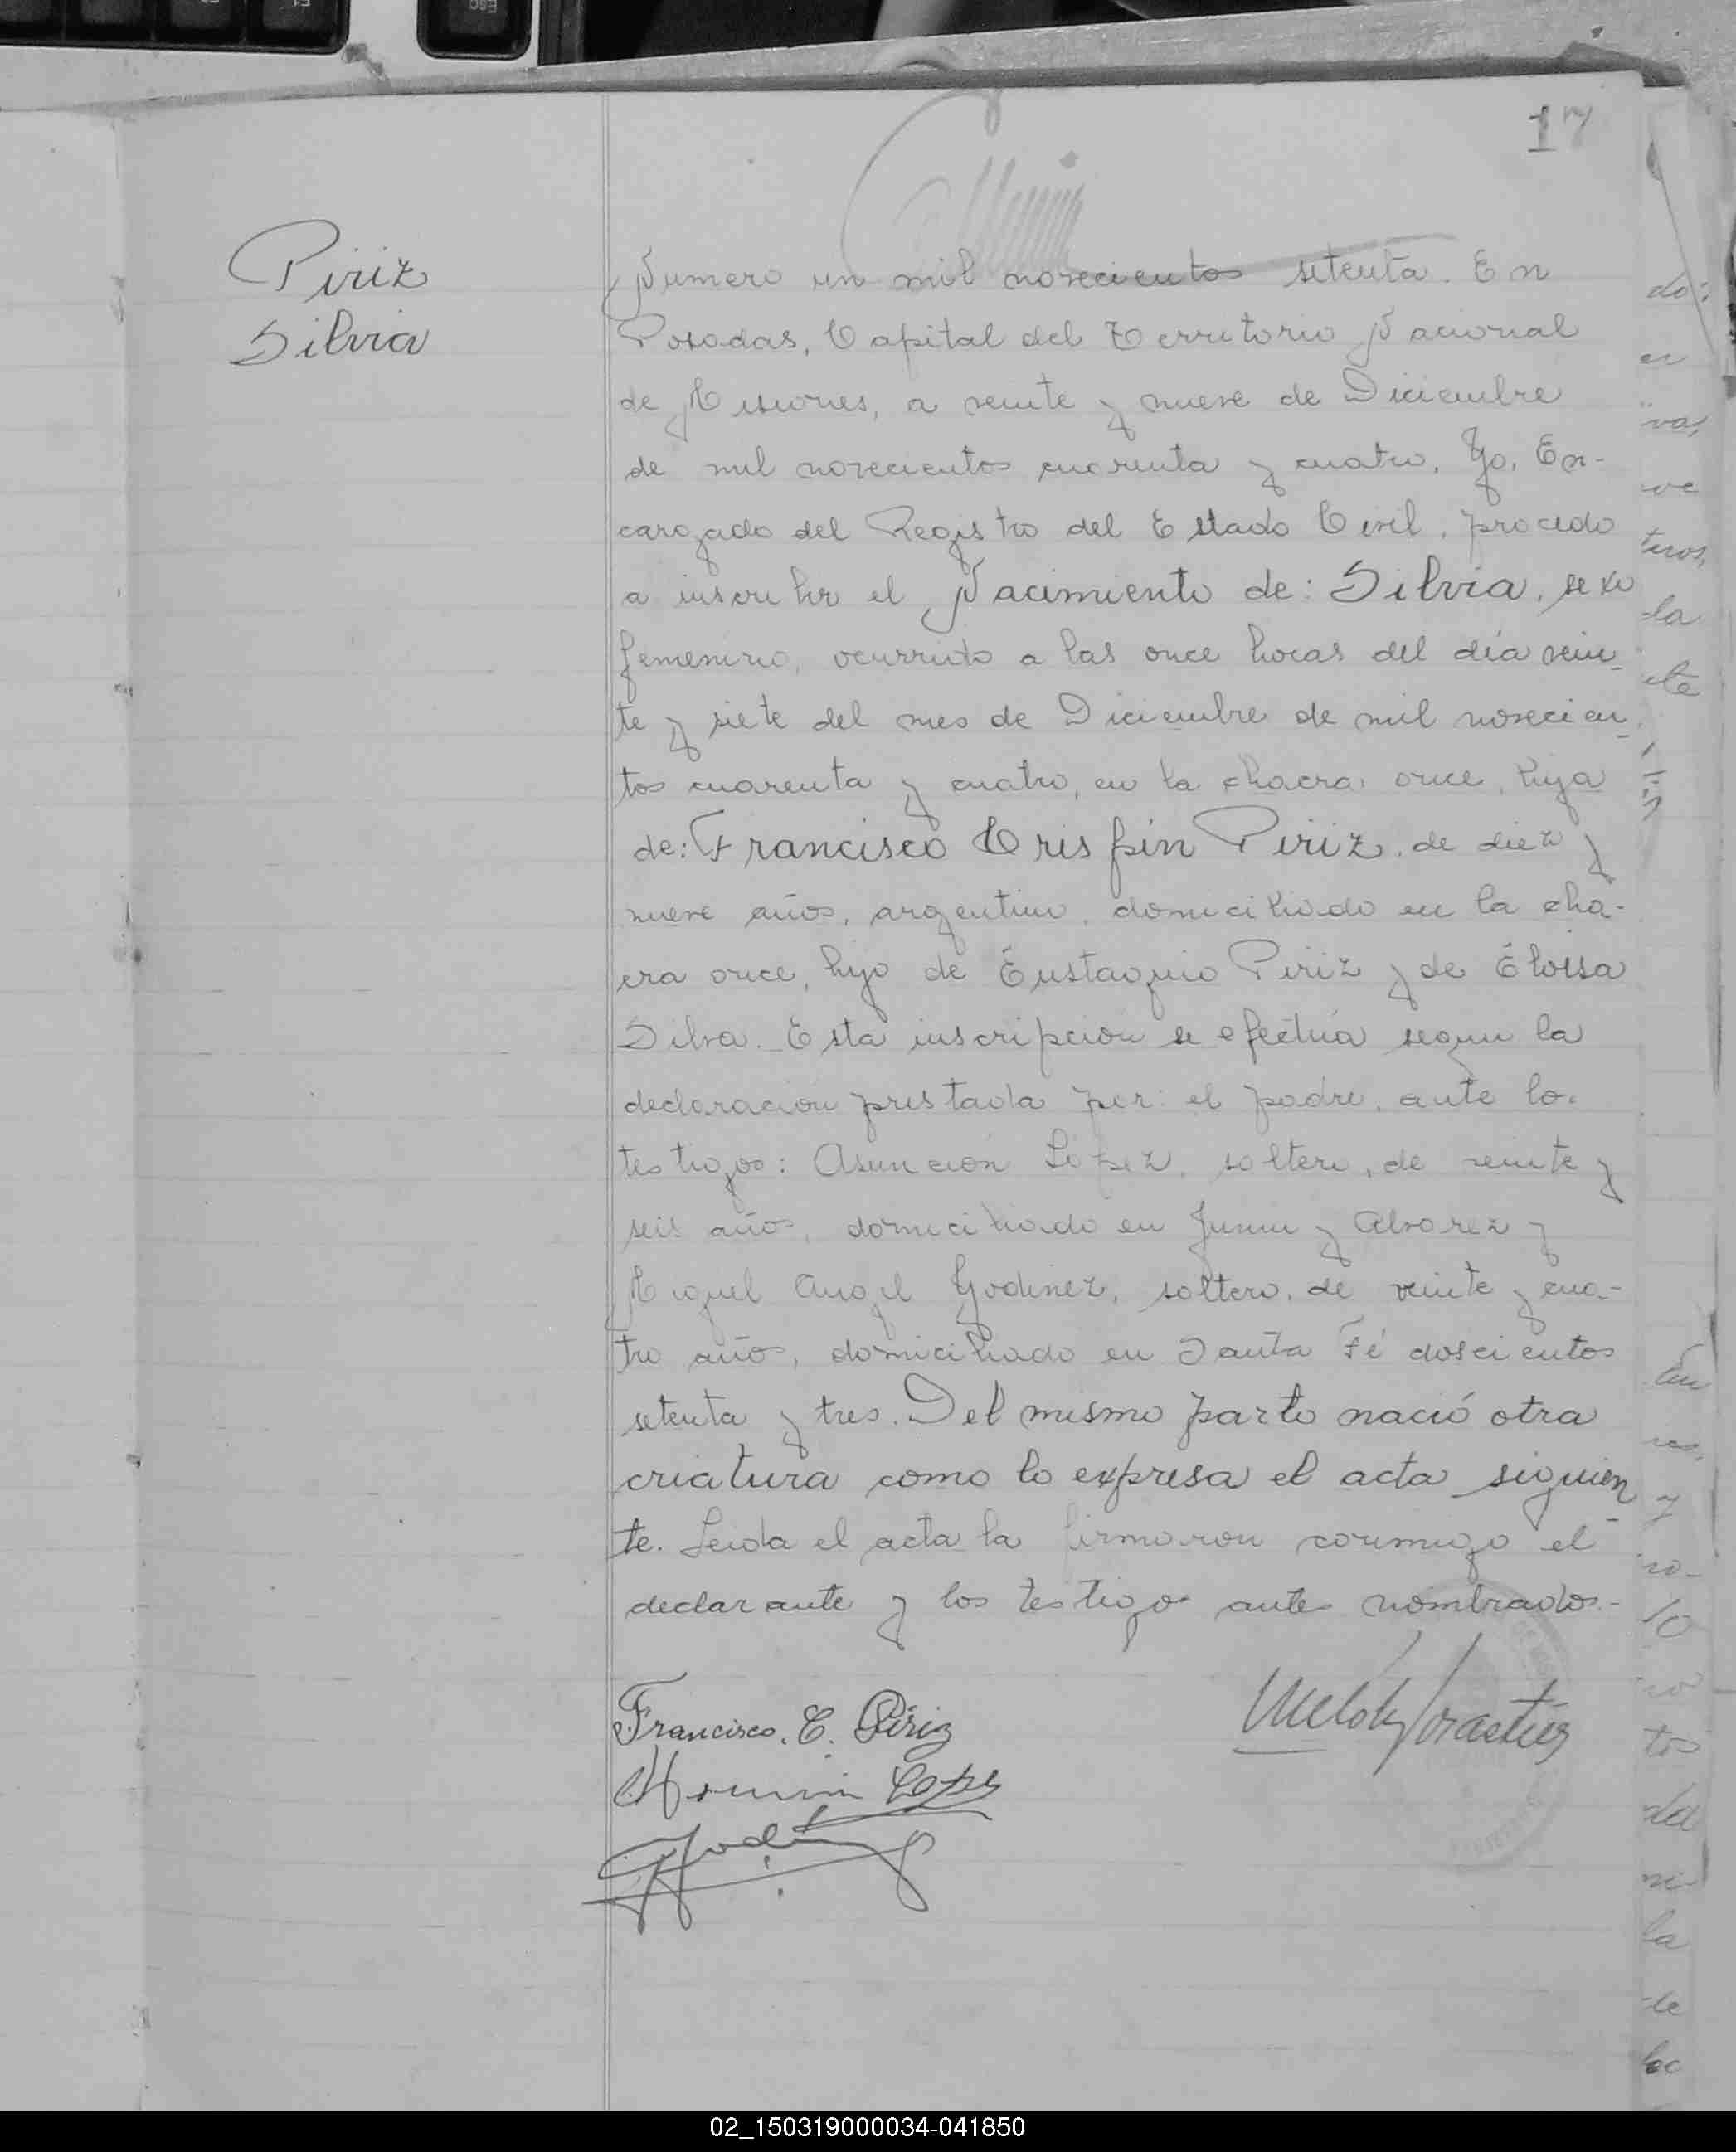 17
Piriz
Silvia
Numero un mil novecientos setenta. En
Posadas, Capital del Territorio Nacional
de Misiones, a veinte y nueve de Diciembre
de mil novecientos cuarenta y cuatro, Yo, En-
cargado del Registro del Estado Civil, procedo
a inscribir el Nacimiento de: Silvia, sexo
femenino, ocurrido a las once horas del día vein_
te y siete del mes de Diciembre de mil novecien_
tos cuarenta y cuatro, en la chacra once, hija
de: Francisco Crispin Piriz, de diez y
nueve años, argentino, domiciliado en la cha-
cra once, hijo de Eustaquio Piriz y de Eloisa
Silva. Esta inscripción se efectúa segun la
declaracion prestada por: el padre, ante los
testigos: Asuncion López, soltero, de veinte y
seis años, domiciliado en Junin y Alvarez y
Miguel Angel Godinez, soltero, de veinte y cua-
tro años, domiciliado en Santa Fé doscientos
setenta y tres. Del mismo parto nació otra
criatura como lo expresa el acta siguien_
te. Leida el acta la firmaron conmigo el
declarante y los testigos antes nombrados.-
Francisco. C. Píriz
02_150319000034-041850